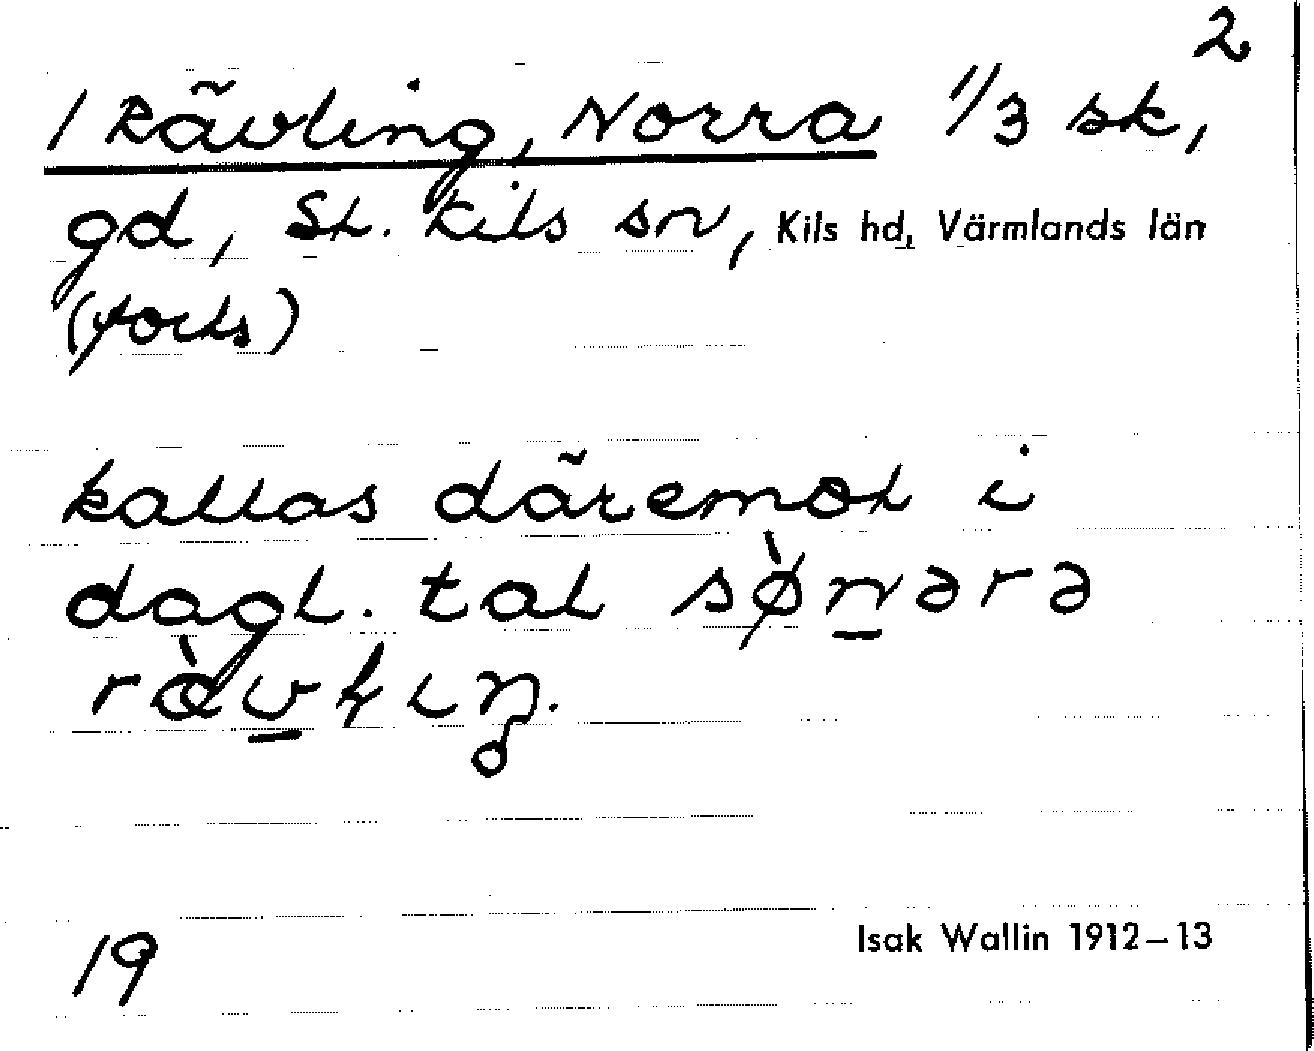 2
/ Rävling, Norra 1/3 sk,
gd, St. Kils sn, Kils hd, Värmlands län
(forts)
kallas däremot i
dagl. tal
19
Isak Wallin 1912–13